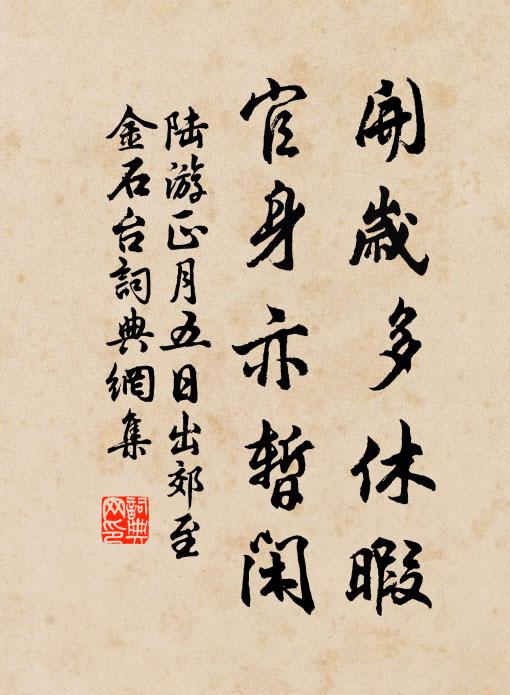 開歲多休暇
官身亦暫閑
陸游正月五日出郊至
金石台詞典網集
詞典
网印